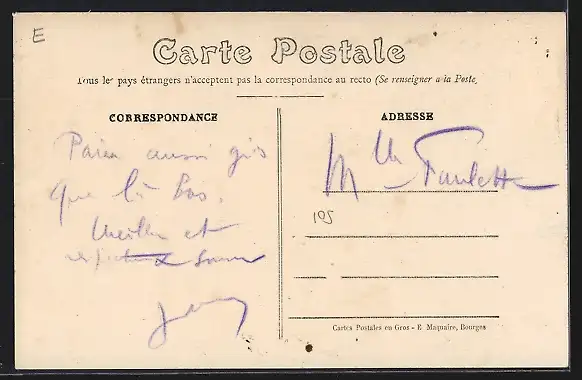 E
Carte Postale
Tous les pays étrangers n'acceptent pas la correspondance au recto (Se renseigner a la Poste
CORRESPONDANCE
ADRESSE
Paris aussi gris
que là bas.
Meilleur et
Mlle Paulette
105
Cartes Postales en Gros - E Maquaire, Bourges